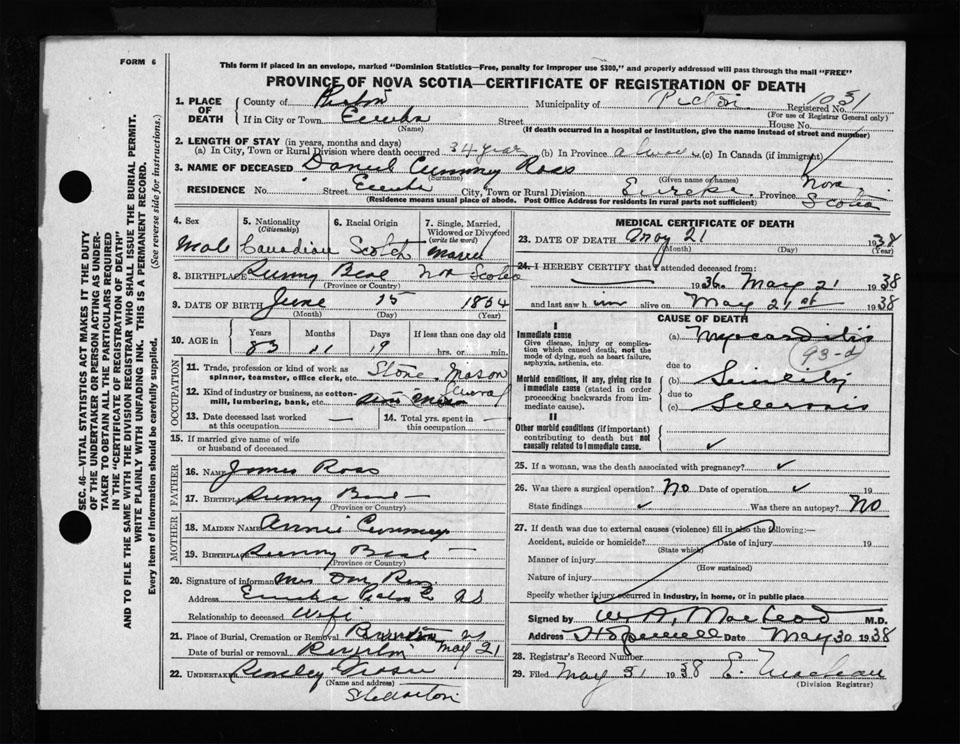 FORM 6
This form if placed in an envelope, marked "Dominion Statistics—Free, penalty for improper use $300," and properly addressed will pass through the mail "FREE"
PROVINCE OF NOVA SCOTIA—CERTIFICATE OF REGISTRATION OF DEATH
1. PLACE OF DEATH
County of Pictou Municipality of Pictou Registered No. 1051
(For use of Registrar General only)
If in City or Town Eureka Street House No.
(Name) (If death occurred in a hospital or institution, give the name instead of street and number)
2. LENGTH OF STAY (in years, months and days)
(a) In City, Town or Rural Division where death occurred 34 years (b) In Province always (c) In Canada (if immigrant)
3. NAME OF DECEASED Daniel Cummey Ross
(Surname) (Given name or names)
RESIDENCE No. Street Eureka City, Town or Rural Division Eureka Province Nova Scotia
(Residence means usual place of abode. Post Office Address for residents in rural parts not sufficient)
4. Sex
Male
5. Nationality (Citizenship)
Canadian
6. Racial Origin
Scotch
7. Single, Married, Widowed or Divorced (write the word)
Married
8. BIRTHPLACE Sunny Brae Nova Scotia
(Province or Country)
9. DATE OF BIRTH June 15 1854
(Month) (Day) (Year)
10. AGE in
Years Months Days If less than one day old
83 11 hrs. or min.
OCCUPATION
11. Trade, profession or kind of work as spinner, teamster, office clerk, etc. Stone Mason
12. Kind of industry or business, as cotton-mill, lumbering, bank, etc.
13. Date deceased last worked at this occupation
14. Total yrs. spent in this occupation
15. If married give name of wife or husband of deceased
FATHER
16. NAME James Ross
17. BIRTHPLACE Sunny Brae
(Province or Country)
MOTHER
18. MAIDEN NAME Annie Cummey
19. BIRTHPLACE Sunny Brae
(Province or Country)
20. Signature of informant Mrs Dan Ross
Address Eureka Pictou Co NS
Relationship to deceased Wife
21. Place of Burial, Cremation or Removal
Date of burial or removal May 21
22. UNDERTAKER
(Name and address)
Stellarton
MEDICAL CERTIFICATE OF DEATH
23. DATE OF DEATH May 21 1938
(Month) (Day) (Year)
24. I HEREBY CERTIFY that I attended deceased from:
1936 May 21 1938
and last saw him alive on May 21st 1938
CAUSE OF DEATH
I
Immediate cause
Give disease, injury or complication which caused death, not the mode of dying, such as heart failure, asphyxia, asthenia, etc.
(a) Myocarditis
93-d
due to
Morbid conditions, if any, giving rise to immediate cause (stated in order proceeding backwards from immediate cause).
(b) Senility
due to
(c) Sclerosis
II
Other morbid conditions (if important) contributing to death but not causally related to immediate cause. ✓
25. If a woman, was the death associated with pregnancy? ✓
26. Was there a surgical operation? No Date of operation ✓ 19
State findings ✓ Was there an autopsy? No
27. If death was due to external causes (violence) fill in also the following:—
Accident, suicide or homicide? Date of injury 19
(State which)
Manner of injury
(How sustained)
Nature of injury
Specify whether injury occurred in industry, in home, or in public place
Signed by W. A. MacLeod M.D.
Address Hopewell Date May 30 1938
28. Registrar's Record Number
29. Filed May 31 1938
(Division Registrar)
SEC. 46—VITAL STATISTICS ACT MAKES IT THE DUTY
OF THE UNDERTAKER OR PERSON ACTING AS UNDER-
TAKER TO OBTAIN ALL THE PARTICULARS REQUIRED
IN THE "CERTIFICATE OF REGISTRATION OF DEATH"
AND TO FILE THE SAME WITH THE DIVISION REGISTRAR WHO SHALL ISSUE THE BURIAL PERMIT.
WRITE PLAINLY WITH UNFADING INK. THIS IS A PERMANENT RECORD.
Every item of information should be carefully supplied. (See reverse side for instructions.)